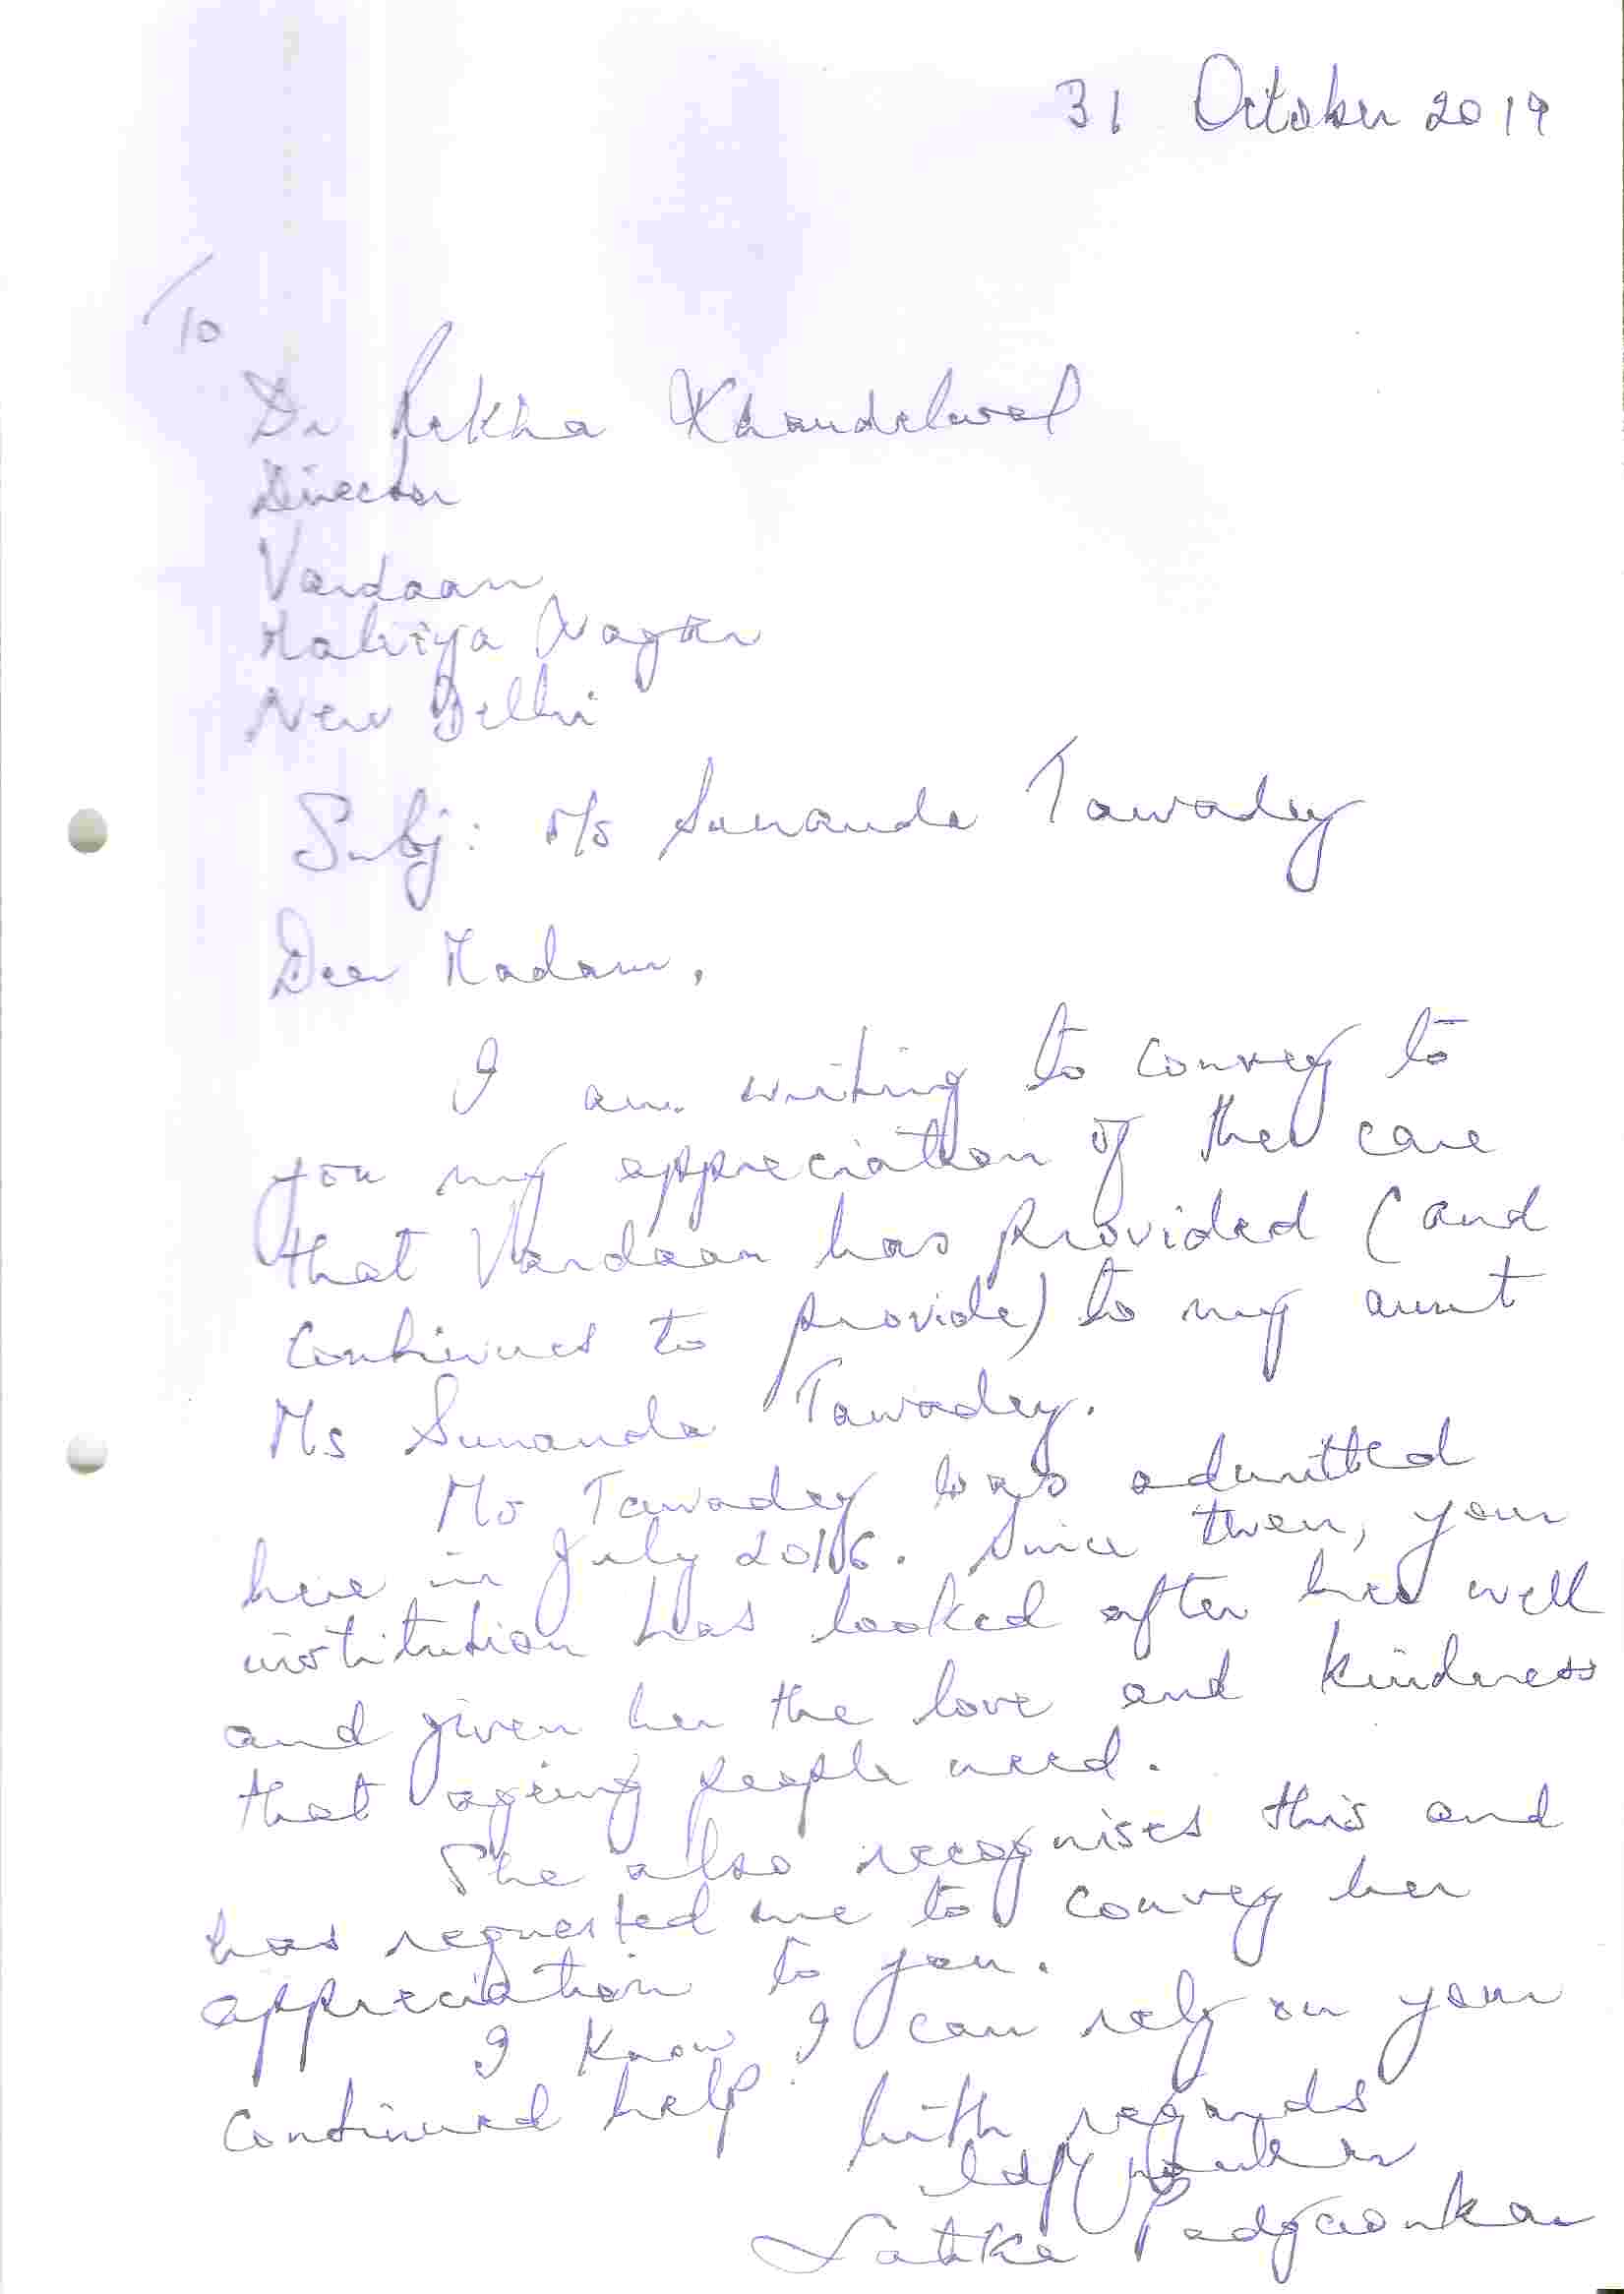 31 October 2019
To
Dr Rekha Khandelwal
Director
Vardaan
Malviya Nagar
New Delhi
Subj: M/s Sunanda Tawadey
Dear Madam,
I am writing to convey to
you my appreciation of the care
that Vardaan has provided (and
continues to provide) to my aunt
Ms Sunanda Tawadey.
Ms Tawadey was admitted
here in July 2016. Since then, your
institution has looked after her well
and given her the love and kindness
that ageing people need.
She also recognises this and
has requested me to convey her
appreciation to you.
I know I can rely on your
continued help.
With regards
Latika Padgaonkar